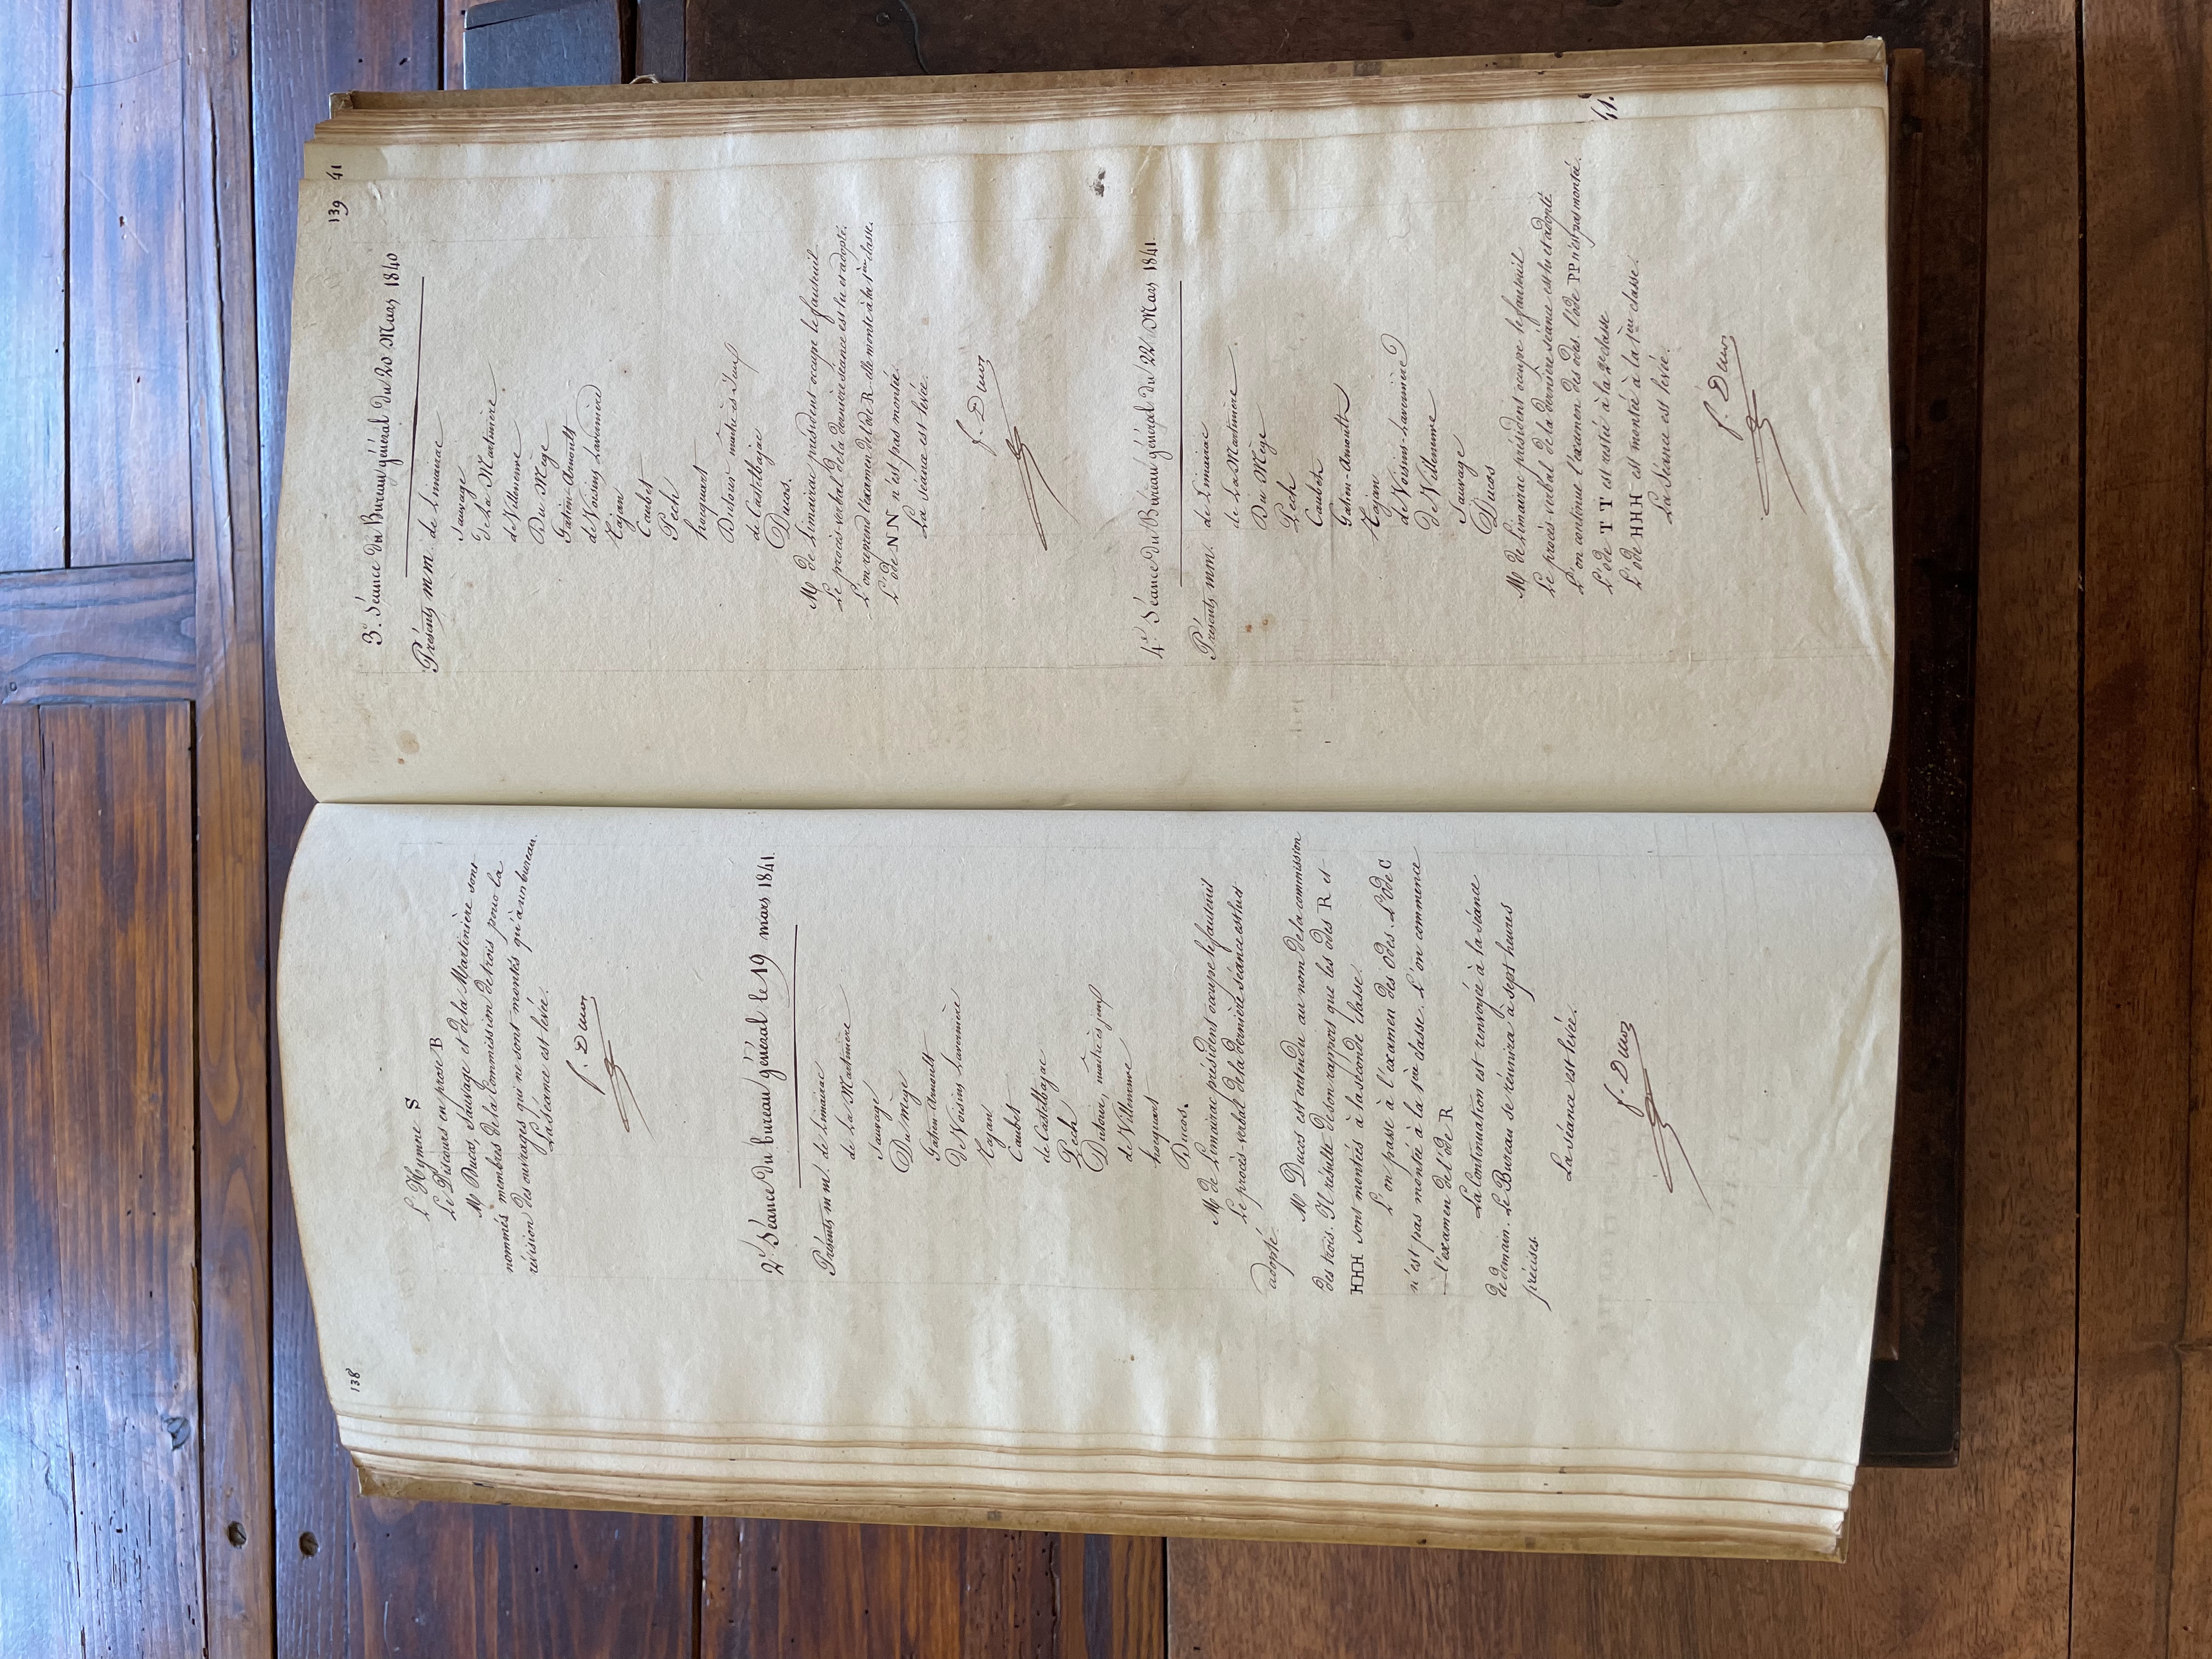 138
L'Hymne S
Le Discours en prose B
Mrs Ducos, Sauvage et de la Martinière sont
nommés membres de la Commission de trois pour la
révision des ouvrages qui ne sont montés qu'à un bureau.
La séance est levée.
f. Ducos
2e Séance du bureau général le 19 mars 1841.
Présents m m. de Limairac
de La Martinière
Sauvage
Du Mège
Gatien-Arnoult
De Voisins Lavernière
Tajan
Caubet
de Castelbajac
Pech
Dutour, maître ès jeux
de Villeneuve
hocquart
Ducos.
Mr de Limairac président occupe le fauteuil
Le procès-verbal de la dernière séance est lu et
adopté.
Mr Ducos est entendu au nom de la commission
des trois. Il résulte de son rapport que les odes R et
HHH sont montées à la seconde Classe.
L'on passe à l'examen des Odes. L'Ode C
n'est pas montée à la 1ère classe. L'on commence
l'examen de l'ode R
La Continuation est renvoyée à la séance
de demain. Le Bureau se réunira à sept heures
précises.
La séance est levée.
f. Ducos
139 41
3e. Séance du Bureau général du 20 Mars 1840
Présents m m. de Limairac
Sauvage
de La Martinière
de Villeneuve
Du Mège
Gatien-Arnoult
de Voisins Lavernière
Tajan
Caubet
Pech
hocquart
Dutour maître ès Jeux
de Castelbajac
Ducos.
Mr de Limairac président occupe le fauteuil
Le procès-verbal de la dernière séance est lu et adopté.
L'on reprend l'examen de l'ode R. elle monte à la 1ère classe.
L'ode NN n'est pas montée.
La séance est levée.
f. Ducos
4e Séance du Bureau général du 22 Mars 1841.
Présents mm. de Limairac
de La Martinière
Du Mège
Pech
Caubet
Gatien-Arnoult
Tajan
de Voisins-Lavernière
de Villeneuve
Sauvage
Ducos
Mr de Limairac président occupe le fauteuil
Le procès verbal de la dernière séance est lu et adopté.
L'on continue l'examen des odes. l'ode PP n'est pas montée.
L'ode TT est restée à la 2e classe
L'ode HHH est montée à la 1ère classe.
La Séance est levée.
f. Ducos
41.